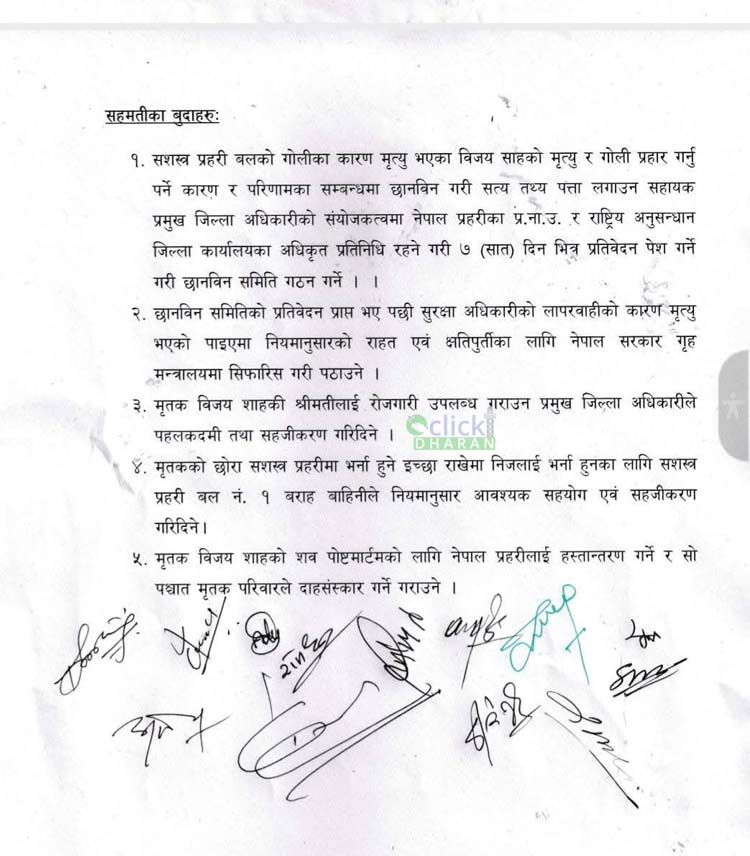 सहमतीका बुदाहरु:
१. सशस्त्र प्रहरी बलको गोलीका कारण मृत्यु भएका विजय साहको मृत्यु र गोली प्रहार गर्नु
पर्ने कारण र परिणामका सम्बन्धमा छानविन गरी सत्य तथ्य पत्ता लगाउन सहायक
प्रमुख जिल्ला अधिकारीको संयोजकत्वमा नेपाल प्रहरीका प्र.ना.उ. र राष्ट्रिय अनुसन्धान
जिल्ला कार्यालयका अधिकृत प्रतिनिधि रहने गरी ७ (सात) दिन भित्र प्रतिवेदन पेश गर्ने
गरी छानविन समिति गठन गर्ने । ।
२. छानविन समितिको प्रतिवेदन प्राप्त भए पछी सुरक्षा अधिकारीको लापरवाहीको कारण मृत्यु
भएको पाइएमा नियमानुसारको राहत एवं क्षतिपुर्तीका लागि नेपाल सरकार गृह
मन्त्रालयमा सिफारिस गरी पठाउने ।
३. मृतक विजय शाहकी श्रीमतीलाई रोजगारी उपलब्ध गराउन प्रमुख जिल्ला अधिकारीले
पहलकदमी तथा सहजीकरण गरिदिने ।
click
DHARAN
४. मृतकको छोरा सशस्त्र प्रहरीमा भर्ना हुने इच्छा राखेमा निजलाई भर्ना हुनका लागि सशस्त्र
प्रहरी बल नं. १ बराह बाहिनीले नियमानुसार आवश्यक सहयोग एवं सहजीकरण
गरिदिने।
५. मृतक विजय शाहको शव पोष्टमार्टमको लागि नेपाल प्रहरीलाई हस्तान्तरण गर्ने र सो
पश्चात मृतक परिवारले दाहसंस्कार गर्ने गराउने ।